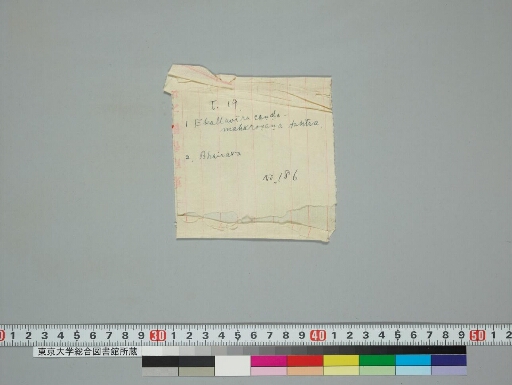 t. 19
1. Ekallavira canda-
maharosana tantra
2. Bhairava
No. 186
0 1 2 3 4 5 6 7 8 9 30 1 2 3 4 5 6 7 8 9 40 1 2 3 4 5 6 7 8 9 50 1 2
東京大学総合図書館所蔵